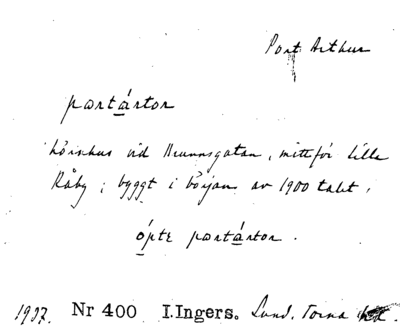 Port Arthur
portártor
hörnhus vid Brunnsgatan, mittför lilla
Råby; byggt i början av 1900 talet.
ópte portártor.
1937. Nr 400 I.Ingers. Lund. Torna hd.